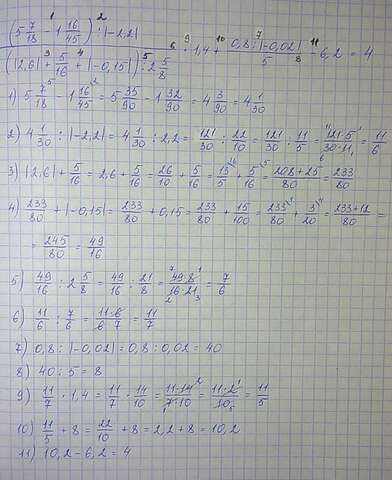 (5 7/18 - 1 16/45) : |-2,2| / (|2,6| + 5/16 + |-0,15|) : 2 5/8 · 1,4 + 0,8 : |-0,02| / 5 - 6,2 = 4
1) 5 7/18 - 1 16/45 = 5 35/90 - 1 32/90 = 4 3/90 = 4 1/30
2) 4 1/30 : |-2,2| = 4 1/30 : 2,2 = 121/30 : 22/10 = 121/30 : 11/5 = 121·5/30·11 = 11/6
3) |2,6| + 5/16 = 2,6 + 5/16 = 26/10 + 5/16 = 13/5 + 5/16 = 208+25/80 = 233/80
4) 233/80 + |-0,15| = 233/80 + 0,15 = 233/80 + 15/100 = 233/80 + 3/20 = 233+12/80 =
= 245/80 = 49/16
5) 49/16 : 2 5/8 = 49/16 : 21/8 = 49·8/16·21 = 7/6
6) 11/6 : 7/6 = 11·6/6·7 = 11/7
7) 0,8 : |-0,02| = 0,8 : 0,02 = 40
8) 40 : 5 = 8
9) 11/7 · 1,4 = 11/7 · 14/10 = 11·14/7·10 = 11·2/10 = 11/5
10) 11/5 + 8 = 22/10 + 8 = 2,2 + 8 = 10,2
11) 10,2 - 6,2 = 4